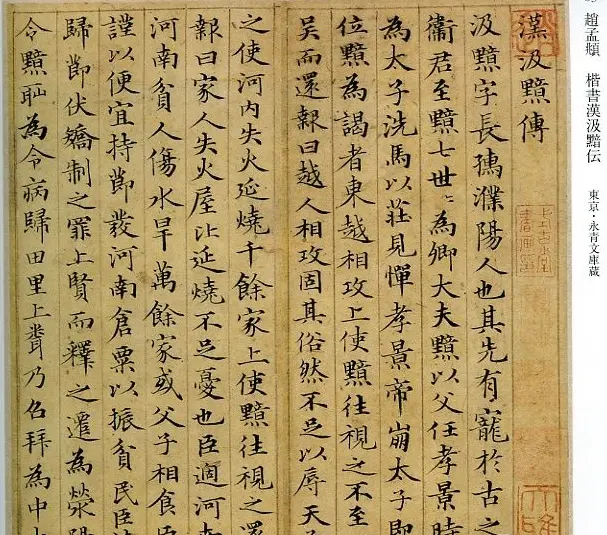 趙孟頫 楷書漢汲黯伝 東京・永青文庫蔵
漢汲黯傳
汲黯字長孺濮陽人也其先有寵於古之
衞君至黯七世〻為卿大夫黯以父任孝景時
為太子洗馬以莊見憚孝景帝崩太子即
位黯為謁者東越相攻上使黯往視之不至
吳而還報曰越人相攻固其俗然不足以辱天
之使河内失火延燒千餘家上使黯往視之還
報曰家人失火屋比延燒不足憂也臣適河
河南貧人傷水旱萬餘家或父子相食臣
謹以便宜持節發河南倉粟以振貧民臣
歸節伏矯制之罪上賢而釋之遷為滎
令黯耻為令病歸田里上聞乃召拜為中